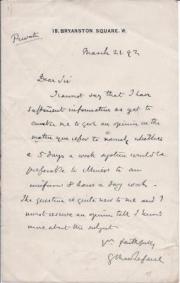 Private
18, BRYANSTON SQUARE. W.
March 21. 92
Dear Sir
I cannot say that I have
sufficient information as yet to
enable me to give an opinion on the
matter you refer to namely whether
a 5 days a week system would be
preferable to Miners to an
uniform 8 hours a day work.
The question is quite new to me and I
must reserve an opinion till I know
more about the subject.
faithfully